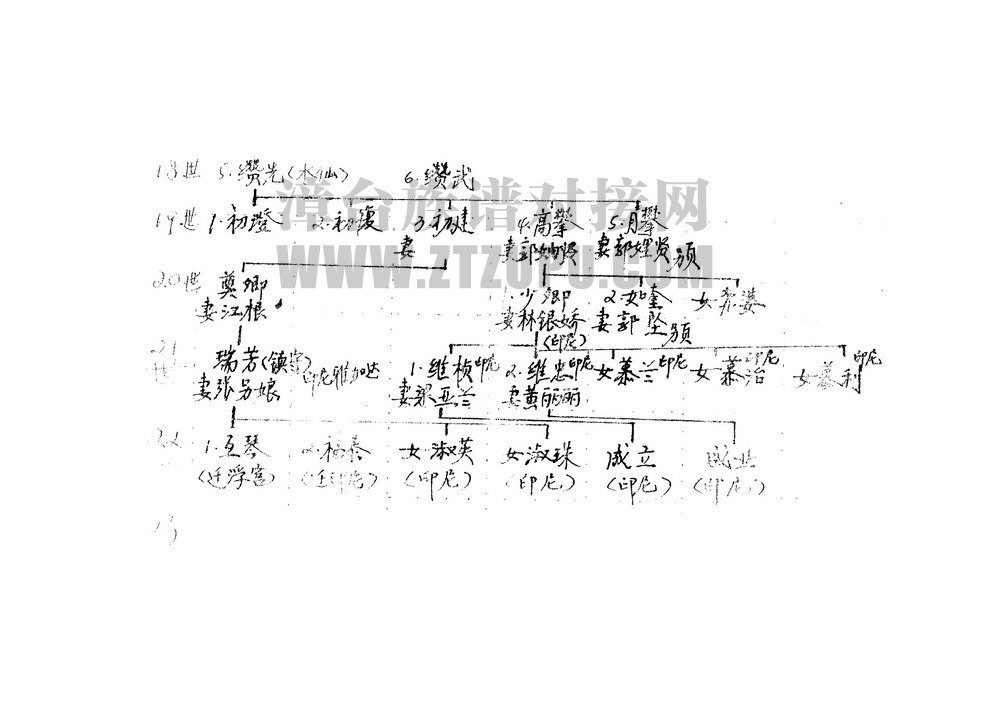 18世 5.缵先(水仙) 6.缵武
漳台族谱对接网
19世 1.初澄 2.初复 3.初建 4.高攀 5.月攀
妻 妻郭 贤 妻郭 贤
WWW.ZTZUPU.COM
20世 奠卿 1.少卿 2.如奎 女
妻江根 妻林银娇 妻郭坠
(印尼)
21世 瑞芳 印尼雅加达 1.维桢印尼 2.维忠印尼 女慕兰印尼 女慕治印尼 女慕利印尼
妻张另娘 妻梁亚兰 妻黄丽丽
22 1.互琴 2.福泰 女淑英 女淑珠 成立 成业
(迁浮宫) (迁印尼) (印尼) (印尼) (印尼) (印尼)